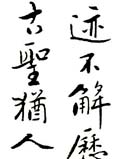 迹不解歷
古聖猶人